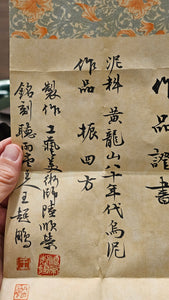 作品證書
泥料 黃龍山八十年代烏泥
作品 振四方
製作 工藝美術師陸順榮
銘刻 聽雨雲主人王超鵬